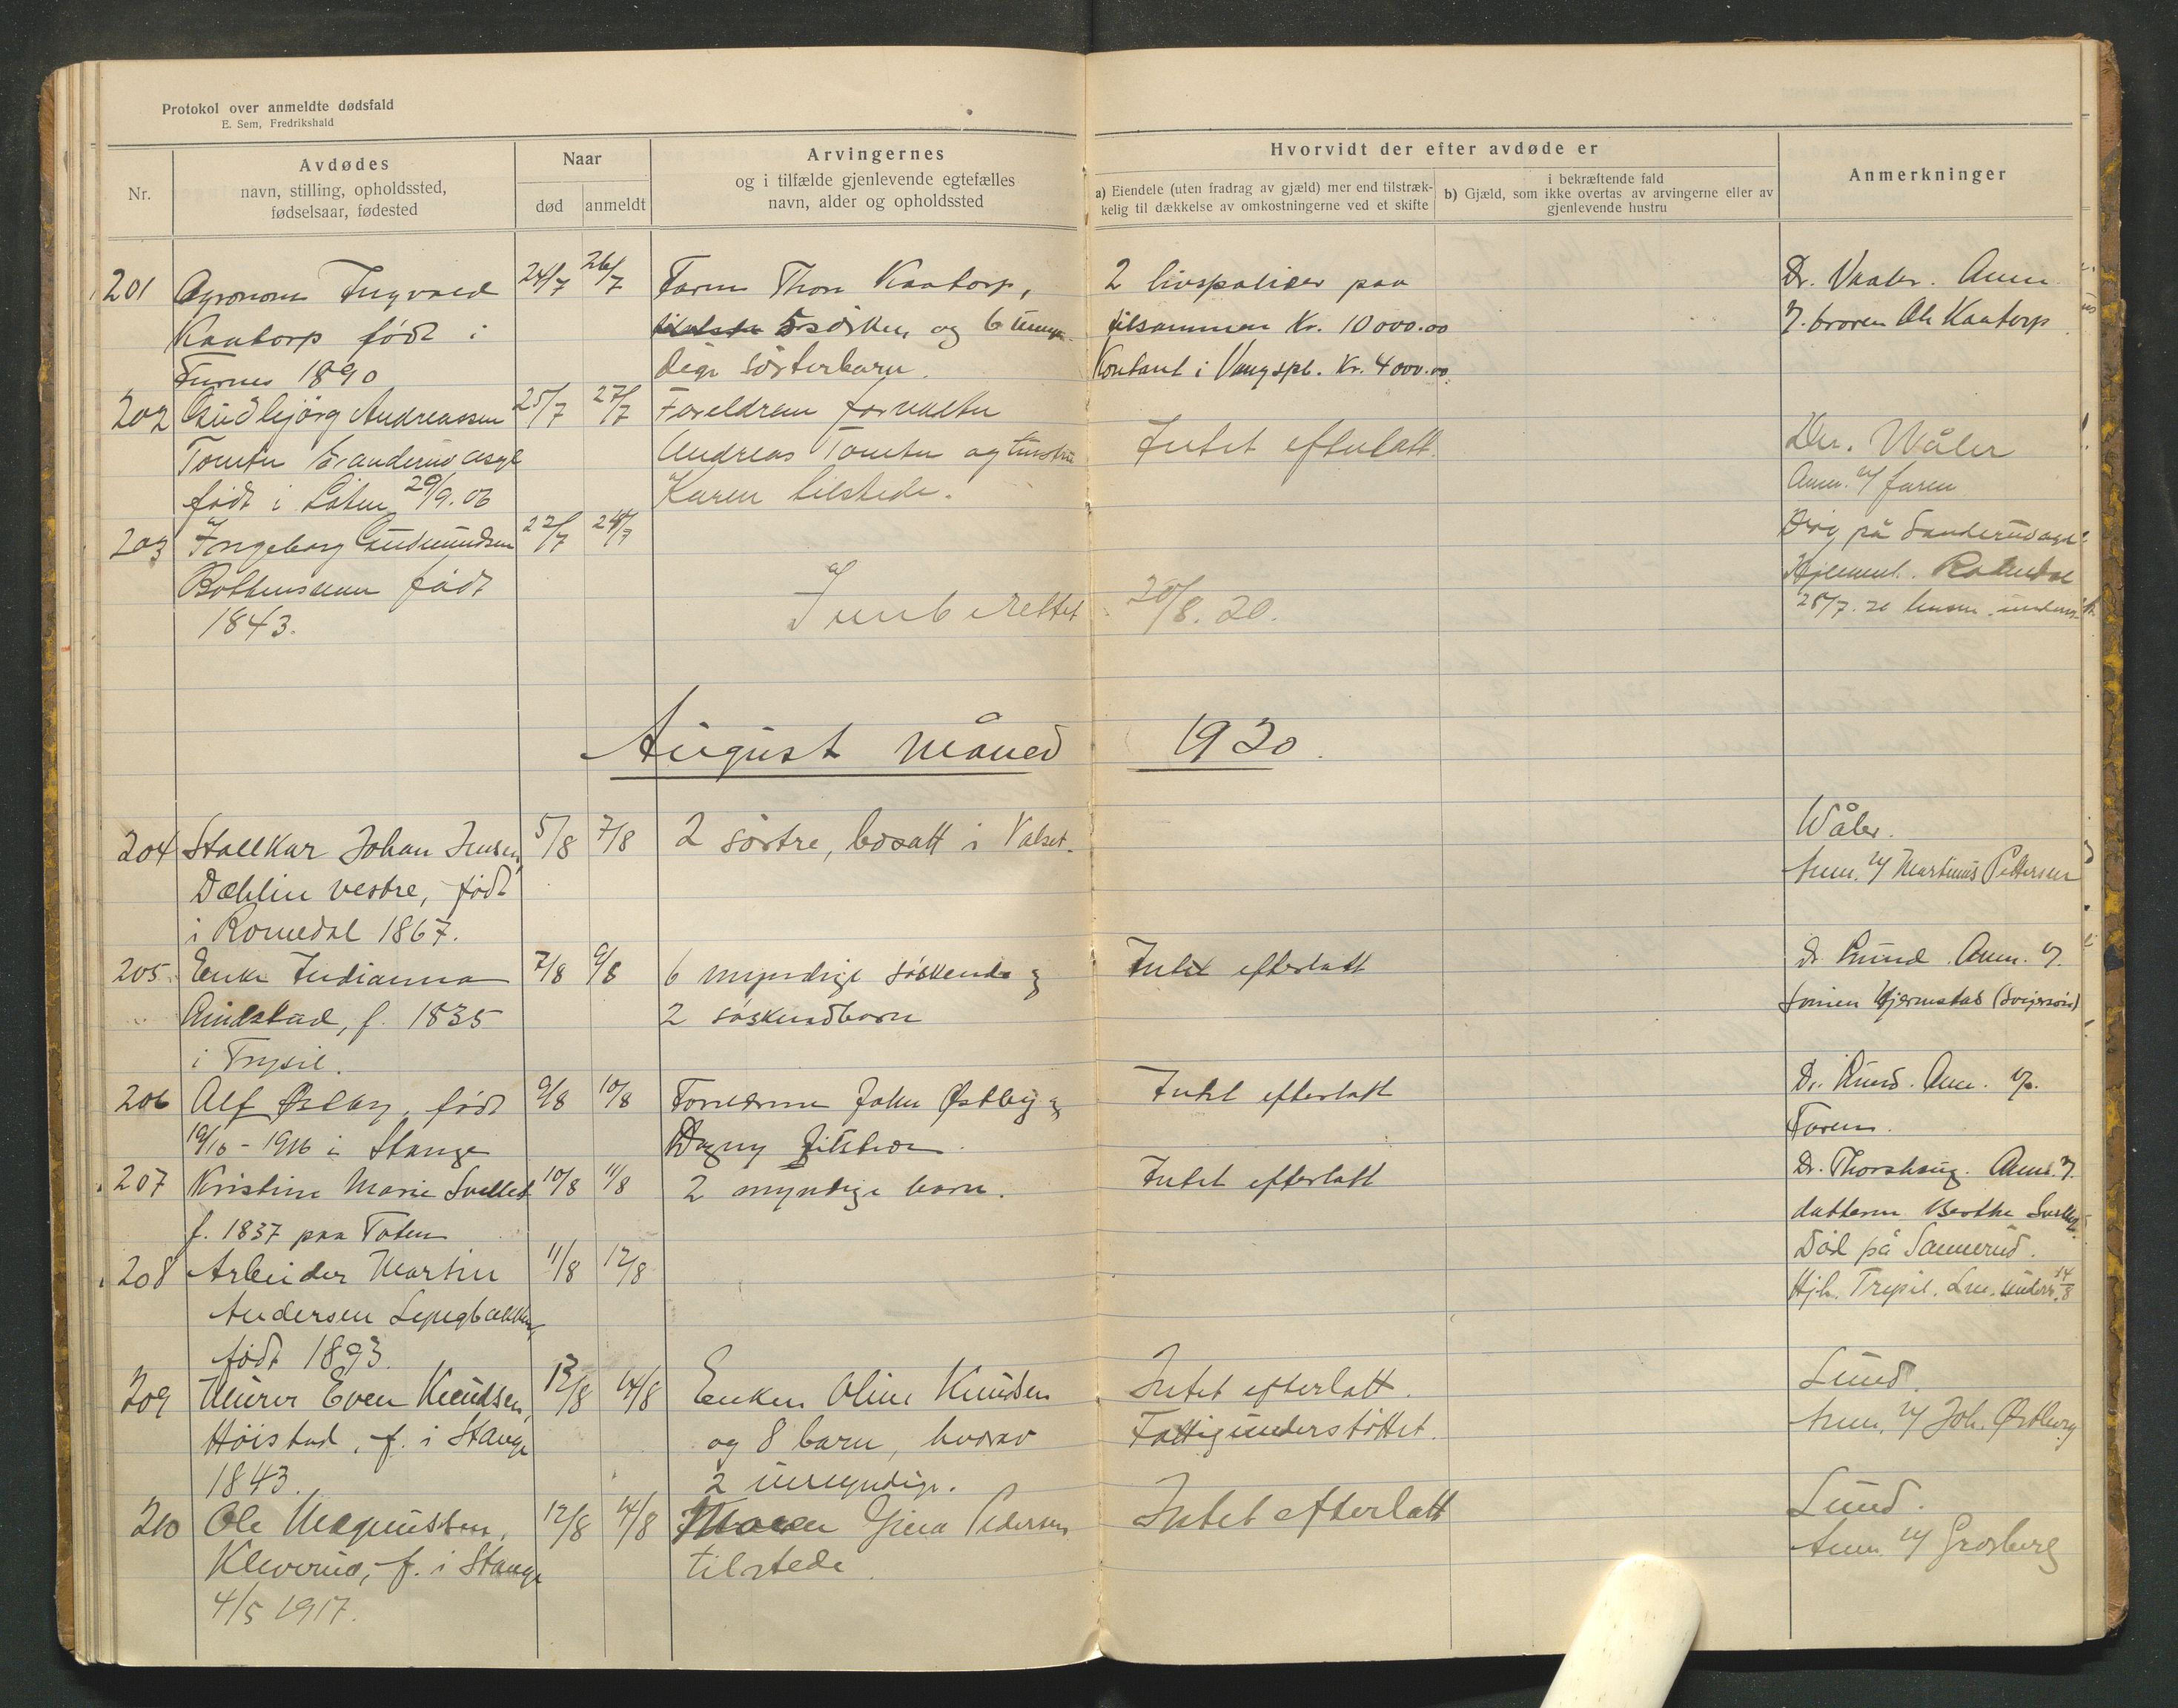 Protokol over anmeldte dødsfald
E. Sem, Fredrikshald
Nr.
Avdødes
navn, stilling, opholdssted,
fødselsaar, fødested
Naar
død
anmeldt
Arvingernes
og i tilfælde gjenlevende egtefælles
navn, alder og opholdssted
Hvorvidt der efter avdøde er
a) Eiendele (uten fradrag av gjæld) mer end tilstræk-
kelig til dækkelse av omkostningerne ved et skifte
i bekræftende fald
b) Gjæld, som ikke overtas av arvingerne eller av
gjenlevende hustru
Anmerkninger
201 Agronom Ingvald 24/7 26/7 Faren Thore Kaatorp, 2 livspoliser paa Dr. Vaaler. Anm.
Kaatorp født i 5 søsken, og 6 umyn- tilsammen Kr. 10 000.00 v. broren Ole Kaatorp
Furnes 1890 dige søsterbarn. Kontant i Vangspb. Kr. 4000.00
202 Gudbjörg Andreassen 25/7 27/7 Foreldrene forvalter
Tomter Sanderud asyl Andreas Tomter og hustru Intet efterlatt. Dr. Wåler
født i Löten 29/9.06 Karen tilstede. Anm. v/ faren
203 Ingeborg Gudmundsen 22/7 24/7 Död på Sanderud asyl.
født Hjemmeh. Romedal
1843. Innberettet 20/8.20. 28/7.20
August måned 1920.
204 Stallkar Johan Jensen, 5/8 7/8 2 søstre, bosatt i Valset. Wåler.
Dæhlin vestre, født Anm. v/ Martinus Pettersen
i Romedal 1867.
205 Enke Indianna 7/8 9/8 6 myndige søskende og Intet efterlatt Dr. Lund. Anm. v.
Rindstad, f. 1835 2 søskendbarn Hjermstad (svigersøn)
i Trysil.
206 Alf Østby, født 9/8 10/8 Foreldrene John Østby og Intet efterlatt Dr. Lund. Anm. v.
19/10 - 1916 i Stange Dagny tilstede. Faren.
207 Kristine Marie 10/8 11/8 2 myndige barn. Intet efterlatt Dr. Thorshaug. Anm. v.
f. 1837 paa Toten datteren Berthe
208 Arbeider Martin 11/8 12/8 Död på Sannerud.
Andersen Hjh. Trysil. Lm. underr. 14/8
født 1893.
209 Murer Even Knudsen, 13/8 14/8 Enken Oline Knudsen Intet efterlatt. Lund.
Höistad, f. i Stange og 8 barn, hvorav Fattigunderstöttet. Anm. v/ Joh. Østberg
1843. 2 umyndige.
210 Ole Magnussen, 12/8 14/8 Moren Gina Pedersen Intet efterlatt Lund.
Kleverud, f. i Stange tilstede. Anm. v/ Grosberg
4/5 1917.